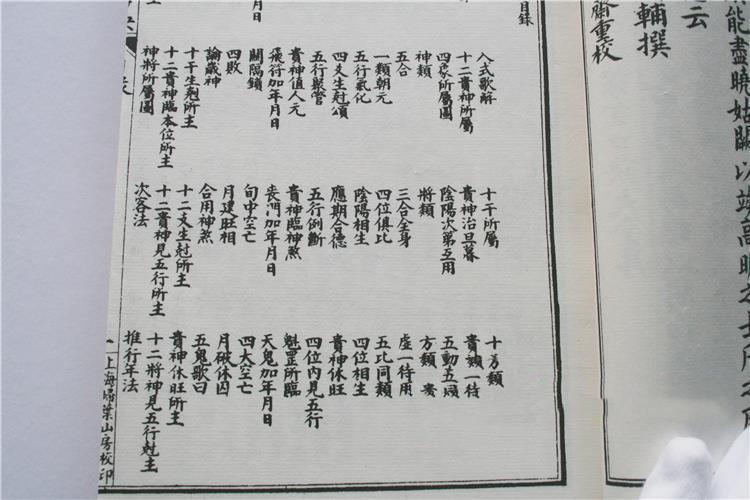 能盡曉姑闢以竢高明
云
輔撰
齋重校
目錄
入式歌解　十干所屬　十方類
十二貴神所屬　貴神治旦暮　貴類一待
四象所屬圖　陰陽次第互用　五動五
神類　將類　方類
五合　三合全身　虛一待用
一類朝元　四位俱比　五比同類
五行氣化　陰陽相生　四位相生
四支生尅頌　應期合德　貴神休旺
五行聚管　五行例斷　四位內見五行
貴神值人元　貴神臨神煞　魁罡所臨
飛符加年月日　喪門加年月日　天鬼加年月日
關隔鎖　旬中空亡　四大空亡
四敗　月建旺相　月破休囚
論歲神　合用神煞　五鬼歌曰
十干生尅所主　十二支生尅所主　貴神休旺所主
十二貴神臨本位所主　十二貴神見五行所主　十二將神見五行尅主
神將所屬圖　次客法　推行年法
一上海埽葉山房校印
年月日